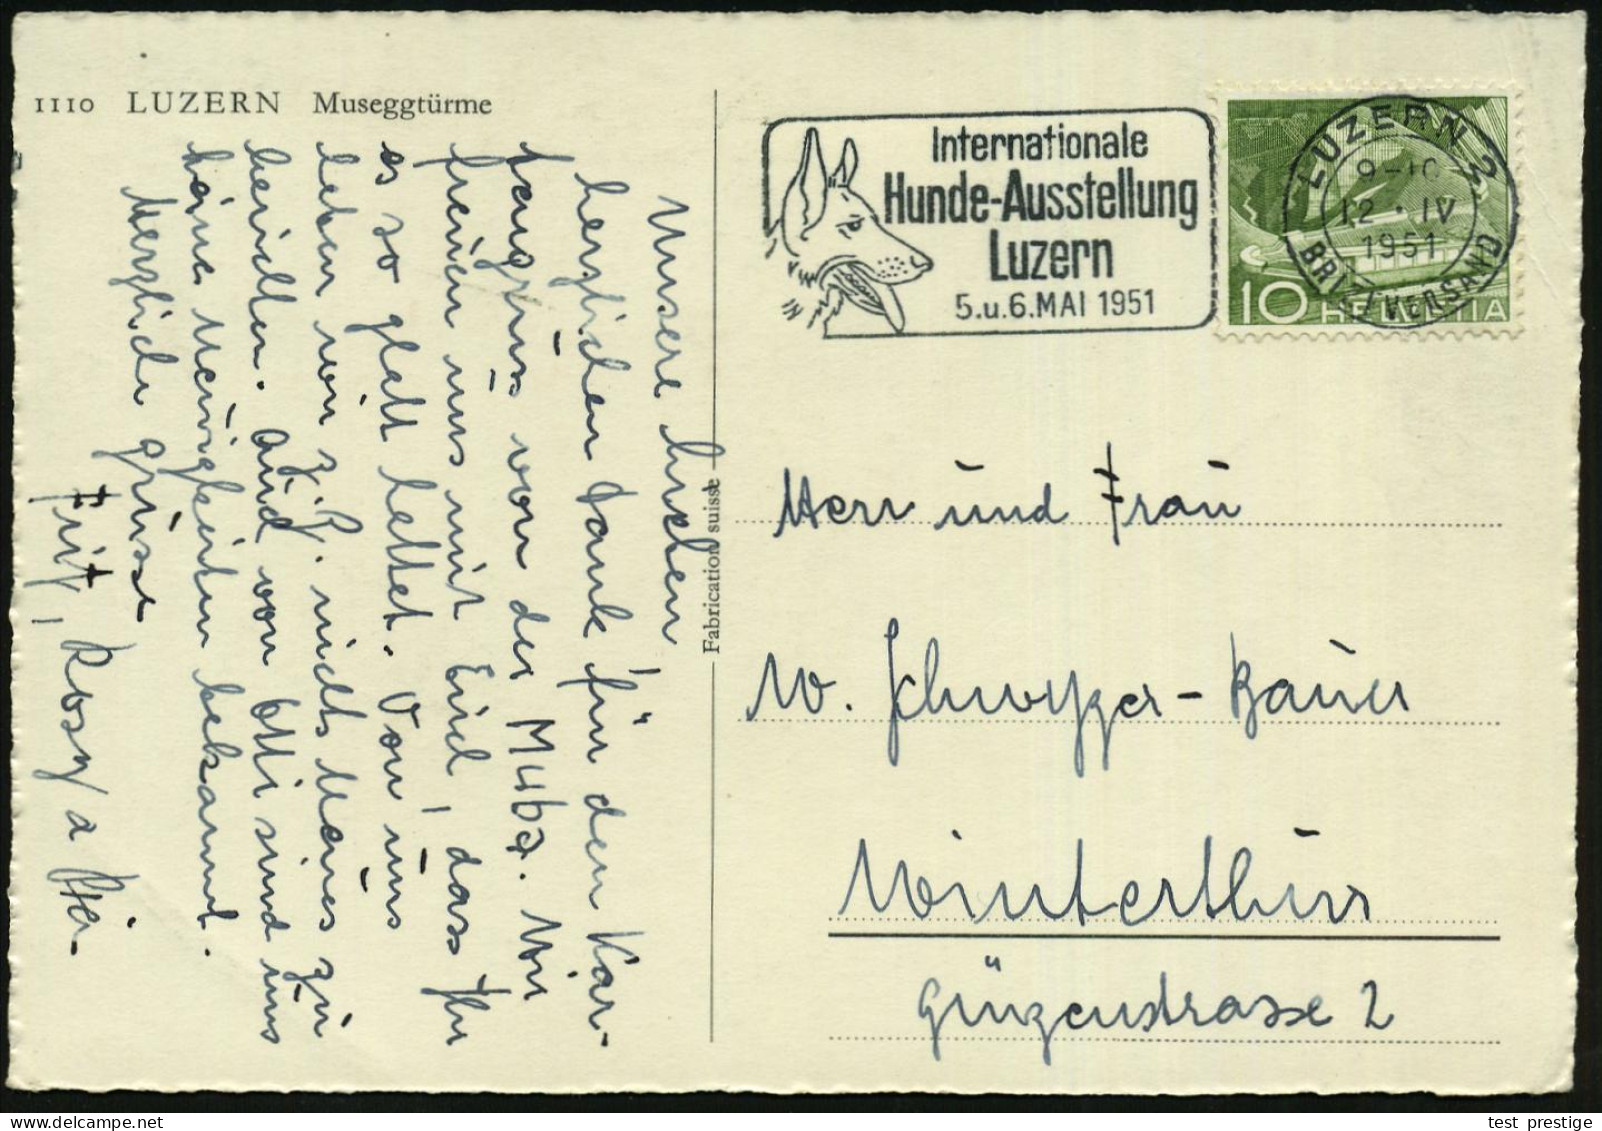 1110 LUZERN Museggtürme
Unsere Lieben
herzlichen Dank für den Kar-
tengruss von der Muba. Wir
freuen uns mit Euch, dass Ihr
es so glatt hattet. Von uns
haben wir z. Z. nichts Neues zu
berichten. Auch von Otti sind uns
keine Neuigkeiten bekannt.
Herzliche Grüsse
Fritz, Rosy &
Fabrication suisse
Internationale
Hunde-Ausstellung
Luzern
5.u.6.MAI 1951
LUZERN 2
9-10
12 · IV
1951
BRIEFVERSAND
10 HELVETIA
Herr und Frau
W. Schwyzer-Bauer
Winterthur
Günzenstrasse 2
test prestige